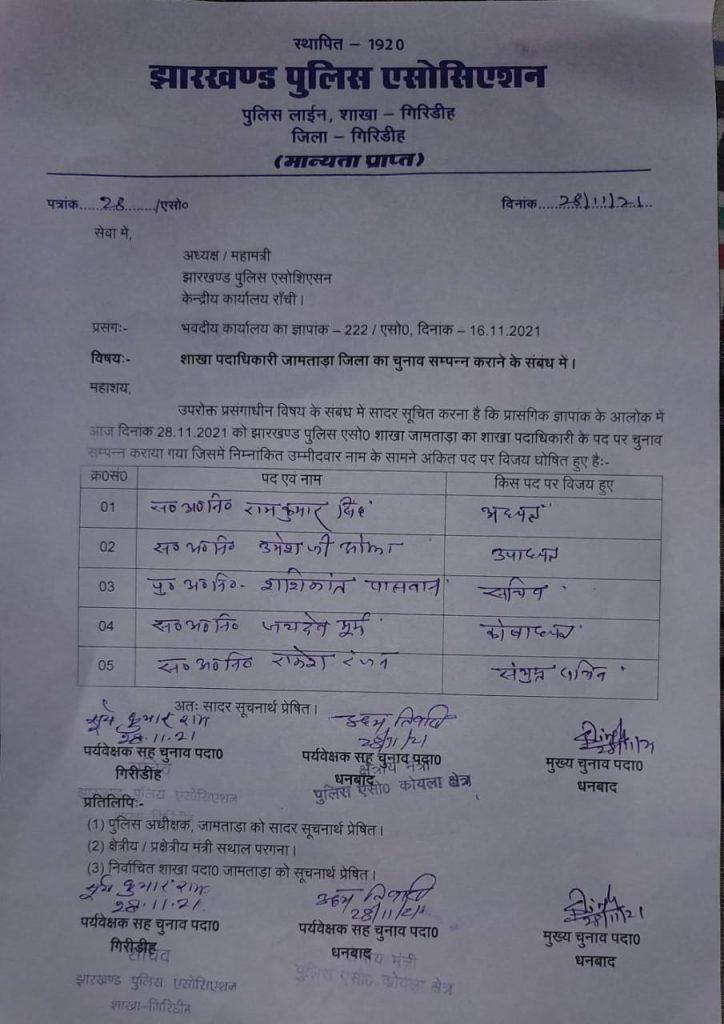 स्थापित – 1920
झारखण्ड पुलिस एसोसिएशन
पुलिस लाईन, शाखा – गिरिडीह
जिला – गिरिडीह
(मान्यता प्राप्त)
पत्रांक.....28......./एसो०
दिनांक....28/11/21..
सेवा में,
अध्यक्ष / महामंत्री
झारखण्ड पुलिस एसोशिएसन
केन्द्रीय कार्यालय राँची।
प्रसंगः- भवदीय कार्यालय का ज्ञापांक – 222 / एसो0, दिनांक – 16.11.2021
विषयः- शाखा पदाधिकारी जामताड़ा जिला का चुनाव सम्पन्न कराने के संबंध में।
महाशय,
उपरोक्त प्रसंगाधीन विषय के संबंध में सादर सूचित करना है कि प्रासंगिक ज्ञापांक के आलोक में
आज दिनांक 28.11.2021 को झारखण्ड पुलिस एसो0 शाखा जामताड़ा का शाखा पदाधिकारी के पद पर चुनाव
सम्पन्न कराया गया जिसमें निम्नांकित उम्मीदवार नाम के सामने अंकित पद पर विजय घोषित हुए हैः-
क्र0सं0 पद एवं नाम किस पद पर विजय हुए
01 स० अ० नि० रामकुमार सिंह अध्यक्ष
02 स० अ० नि० उमेश जी ओझा उपाध्यक्ष
03 पु० अ० नि०- शशिकांत पासवान सचिव
04 स० अ० नि० जयदेव मुर्मू कोषाध्यक्ष
05 स० अ० नि० राकेश रंजन संयुक्त सचिव
अतः सादर सूचनार्थ प्रेषित।
सूर्य कुमार राम
28.11.21
पर्यवेक्षक सह चुनाव पदा0
गिरीडीह
सचिव
झारखण्ड पुलिस एसोसिएशन
शाखा-गिरिडीह
28/11/21
पर्यवेक्षक सह चुनाव पदा0
धनबाद
क्षेत्रीय मंत्री
पुलिस एसो0 कोयला क्षेत्र
28/11/21
मुख्य चुनाव पदा0
धनबाद
प्रतिलिपिः-
(1) पुलिस अधीक्षक, जामताड़ा को सादर सूचनार्थ प्रेषित।
(2) क्षेत्रीय / प्रक्षेत्रीय मंत्री सथाल परगना।
(3) निर्वाचित शाखा पदा0 जामताड़ा को सूचनार्थ प्रेषित।
सूर्य कुमार राम
28.11.21
पर्यवेक्षक सह चुनाव पदा0
गिरीडीह
सचिव
झारखण्ड पुलिस एसोसिएशन
शाखा-गिरिडीह
28/11/21
पर्यवेक्षक सह चुनाव पदा0
धनबाद
क्षेत्रीय मंत्री
पुलिस एसो0 कोयला क्षेत्र
28/11/21
मुख्य चुनाव पदा0
धनबाद